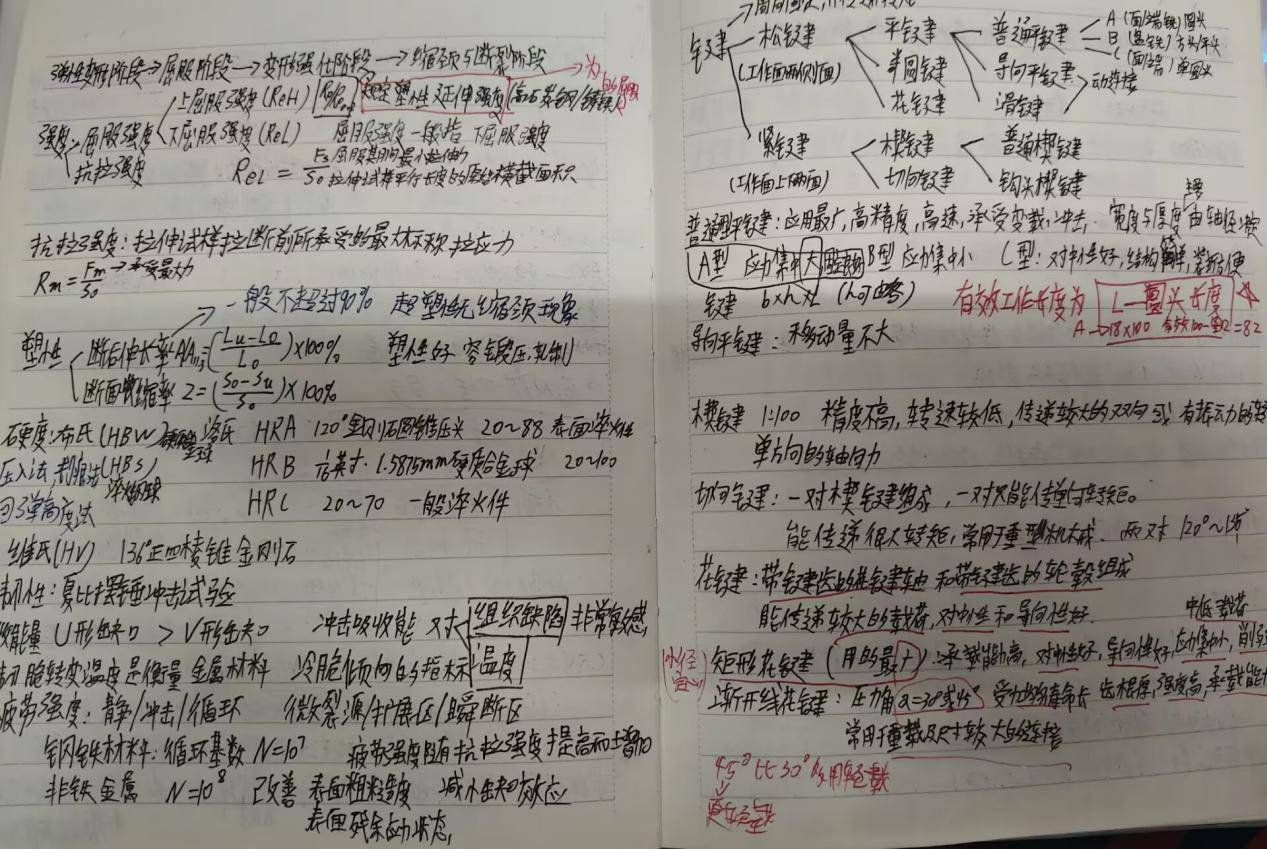 弹性变形阶段→屈服阶段→变形强化阶段→缩颈与断裂阶段
强度: 屈服强度 上屈服强度(ReH) 规定塑性延伸强度(高碳钢/铸铁) 为
下屈服强度(ReL) 屈服强度一般指下屈服强度
抗拉强度 ReL = Fs 屈服期间最小拉伸力 / So 拉伸试样平行长度的原始横截面积
抗拉强度: 拉伸试样拉断前所承受的最大标称拉应力
Rm = Fm/So → 承受最大力
一般不超过90% 超塑性无缩颈现象
塑性 断后伸长率 A = (Lu-Lo / Lo)×100% 塑性好 容易锻压、轧制
断面收缩率 Z = (So-Su / So)×100%
硬度: 布氏(HBW) 洛氏 HRA 120°金刚石圆锥压头 20~88 表面淬火件
压入法, (HBS) 淬火钢球 HRB 1.5875mm硬质合金球 20~100
回弹高度法 HRC 20~70 一般淬火件
维氏(HV) 136°正四棱锥金刚石
韧性: 夏比摆锤冲击试验
U形缺口 > V形缺口 冲击吸收能 对 组织缺陷 非常敏感
温度
韧脆转变温度是衡量金属材料 冷脆倾向的指标
疲劳强度: 静/冲击/循环 微裂源/扩展区/瞬断区
钢铁材料: 循环基数 N=10⁷ 疲劳强度随抗拉强度提高而增加
非铁金属 N=10⁸ 改善 表面粗糙度 减小缺口效应
表面残余应力状态,
键 松键 平键 普通平键 A (面端铣) 圆头
B (盘铣) 方头
C (面端) 单圆头
(工作面两侧面) 半圆键 导向平键 动连接
花键 滑键
紧键 楔键 普通楔键
(工作面上下两面) 切向键 钩头楔键
普通型平键: 应用最广, 高精度, 高速, 承受变载, 冲击. 宽度与厚度由轴径决定
A型 应力集中大 B型 应力集中小 C型: 对中性好, 结构简单, 装拆方便
键 b×h×L (h可省略) 有效工作长度为 L-圆头长度
A→18×100 有效100-18=82
导向平键: 移动量不大
楔键 1:100 精度不高, 转速较低, 传递较大的双向或有振动的转矩
单方向的轴向力
切向键: 一对楔键组成, 一对只能传单向转矩。
能传递很大转矩, 常用于重型机械. 两对 120°~135°
花键: 带键齿的花键轴和带键齿的轮毂组成
能传递较大的载荷, 对中性和导向性好.
中低载荷
外径定心 矩形花键 (用的最广): 承载能力高, 对中性好, 导向性好, 应力集中小, 削弱
渐开线花键: 压力角α=30°或45° 受力均匀寿命长 齿根厚, 强度高, 承载能力
常用于重载及尺寸较大的连接
45°比30° 多用轻载